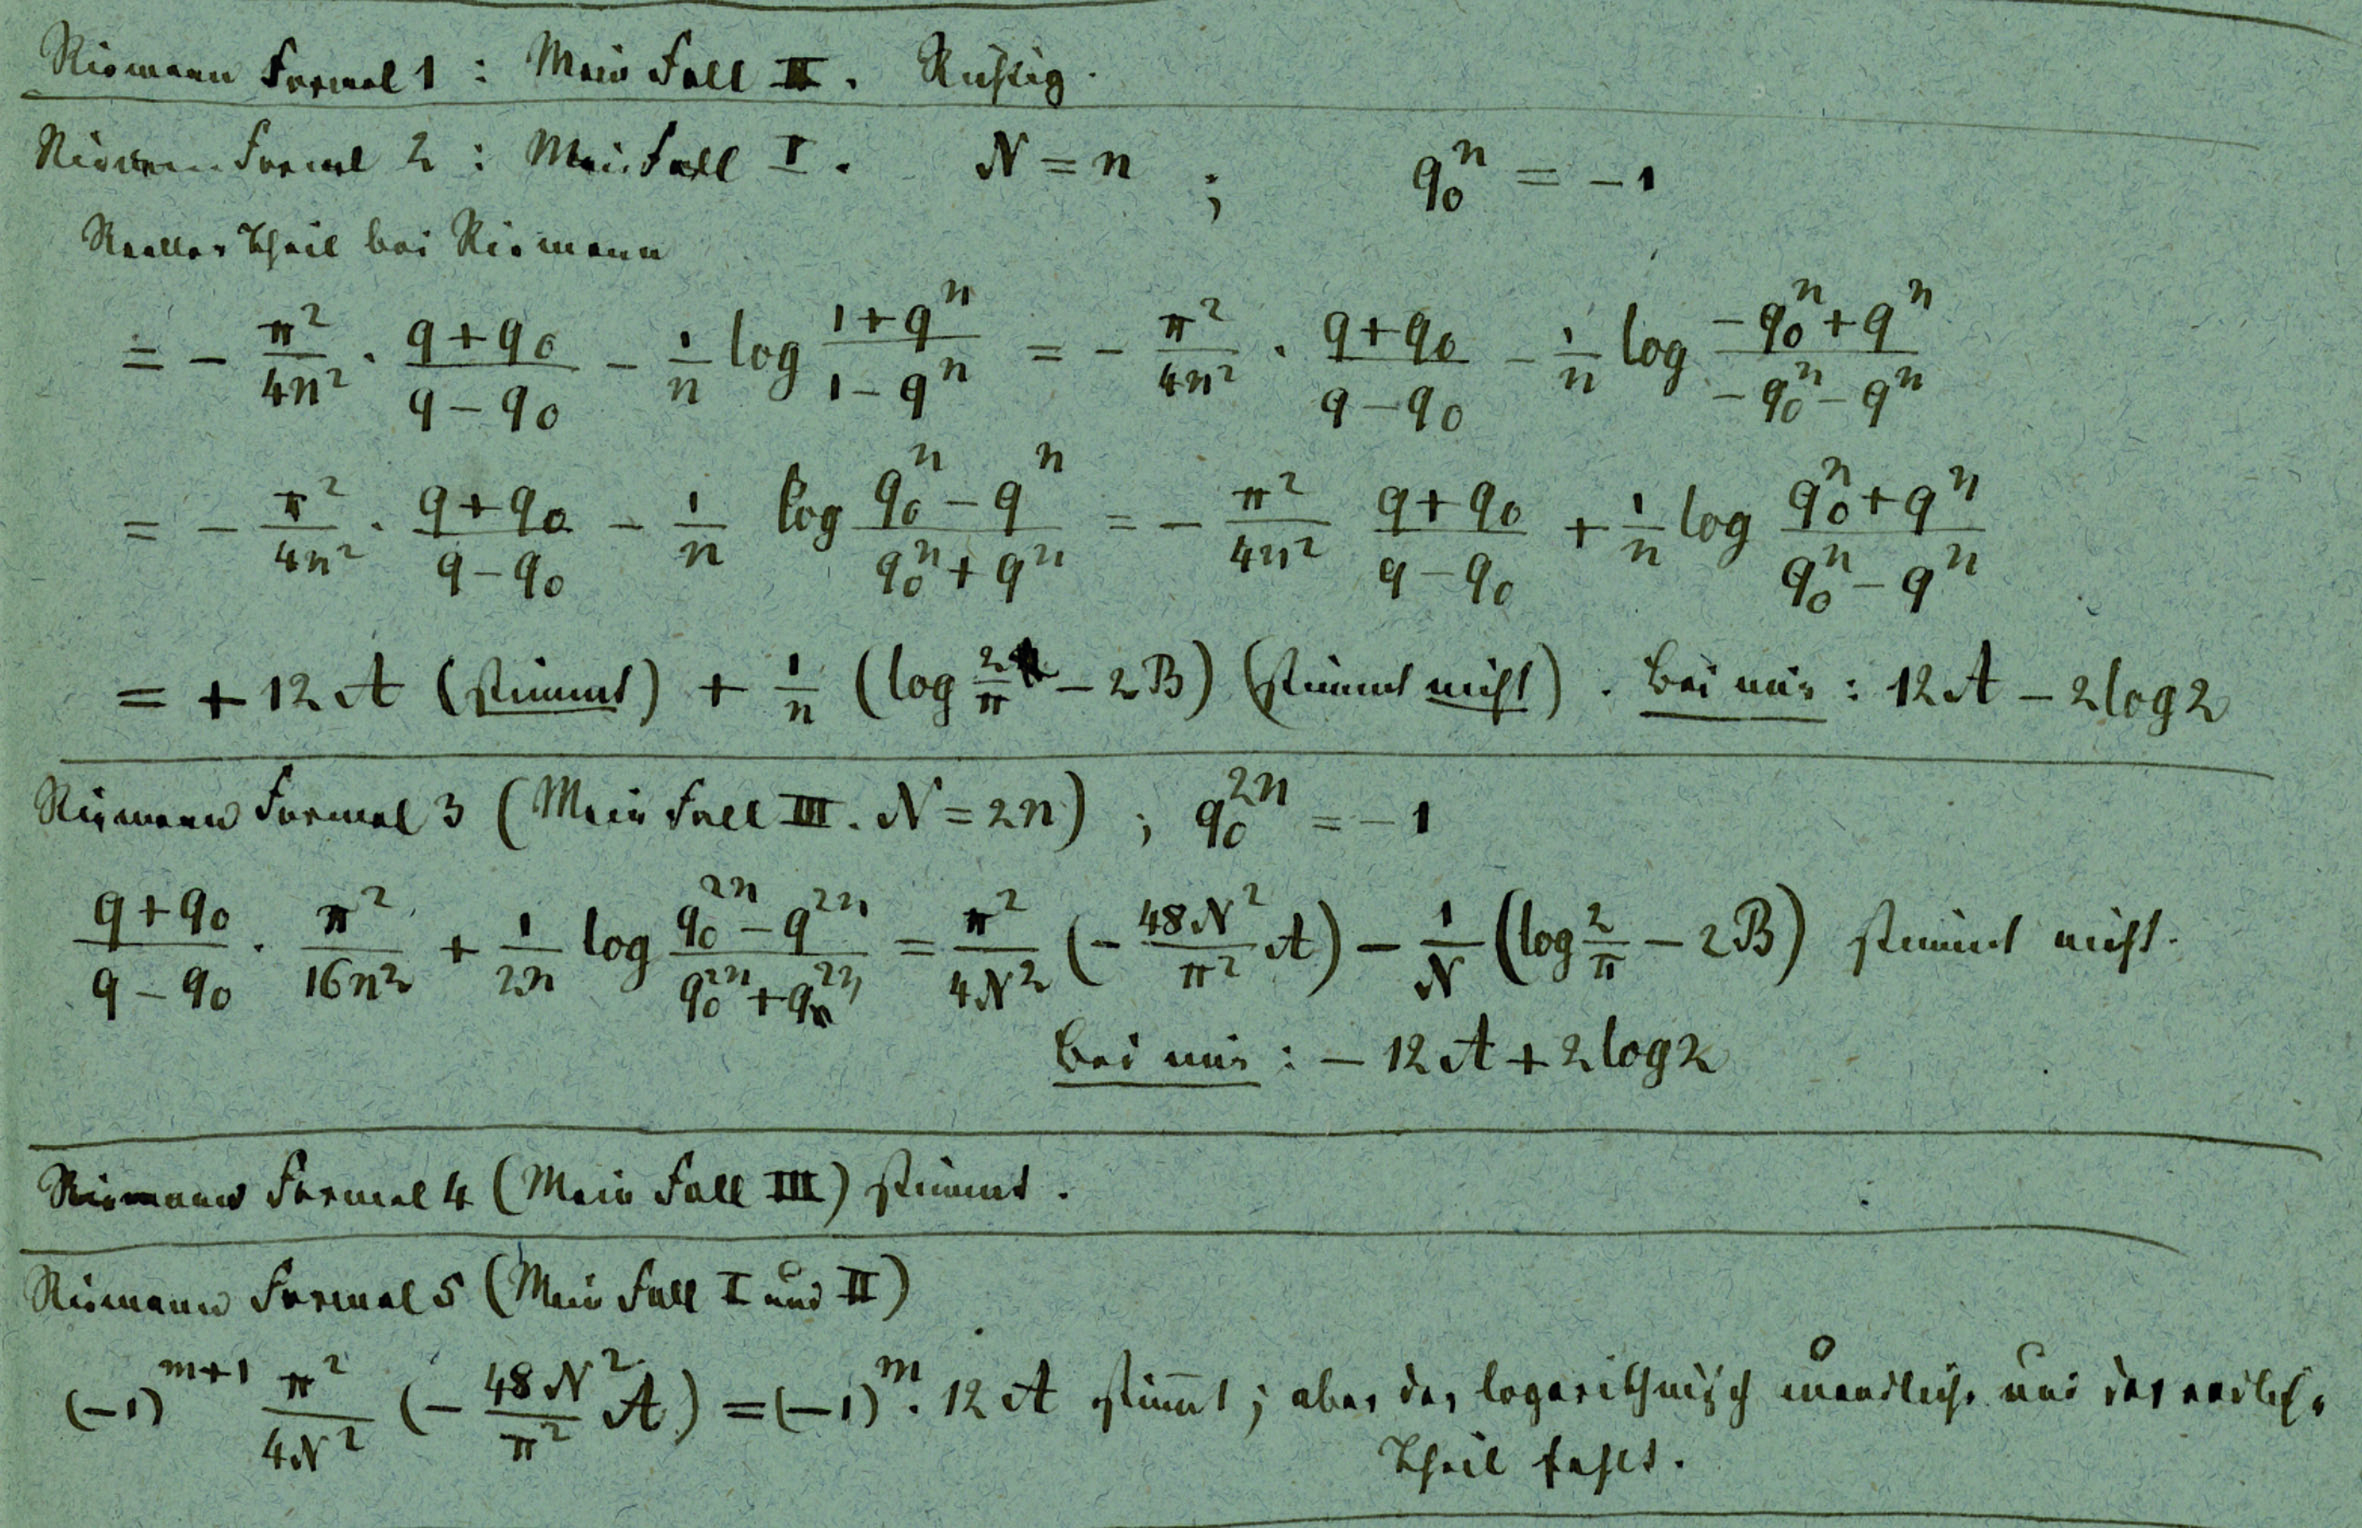 Riemann Formel 1 : Mein Fall II. Richtig.
Riemann Formel 2 : Mein Fall I. N = n ; q₀ⁿ = −1
Reeller Theil bei Riemann
= − π²/4n² · (q+q₀)/(q−q₀) − 1/n log (1+qⁿ)/(1−qⁿ) = − π²/4n² · (q+q₀)/(q−q₀) − 1/n log (−q₀ⁿ+qⁿ)/(−q₀ⁿ−qⁿ)
= − π²/4n² · (q+q₀)/(q−q₀) − 1/n log (q₀ⁿ−qⁿ)/(q₀ⁿ+qⁿ) = − π²/4n² (q+q₀)/(q−q₀) + 1/n log (q₀ⁿ+qⁿ)/(q₀ⁿ−qⁿ)
= + 12 A (stimmt) + 1/n (log 2/π − 2B) (stimmt nicht). Bei mir : 12 A − 2 log 2
Riemann Formel 3 (Mein Fall III. N = 2n) ; q₀²ⁿ = −1
(q+q₀)/(q−q₀) · π²/16n² + 1/2n log (q₀²ⁿ−q²ⁿ)/(q₀²ⁿ+q²ⁿ) = π²/4N² (− 48N²/π² A) − 1/N (log 2/π − 2B) stimmt nicht.
Bei mir : − 12 A + 2 log 2
Riemann Formel 4 (Mein Fall III) stimmt.
Riemann Formel 5 (Mein Fall I und II)
(−1)ᵐ⁺¹ π²/4N² (− 48N²/π² A) = (−1)ᵐ · 12 A stimmt ; aber der logarithmisch unendliche und der endliche
Theil fehlt.